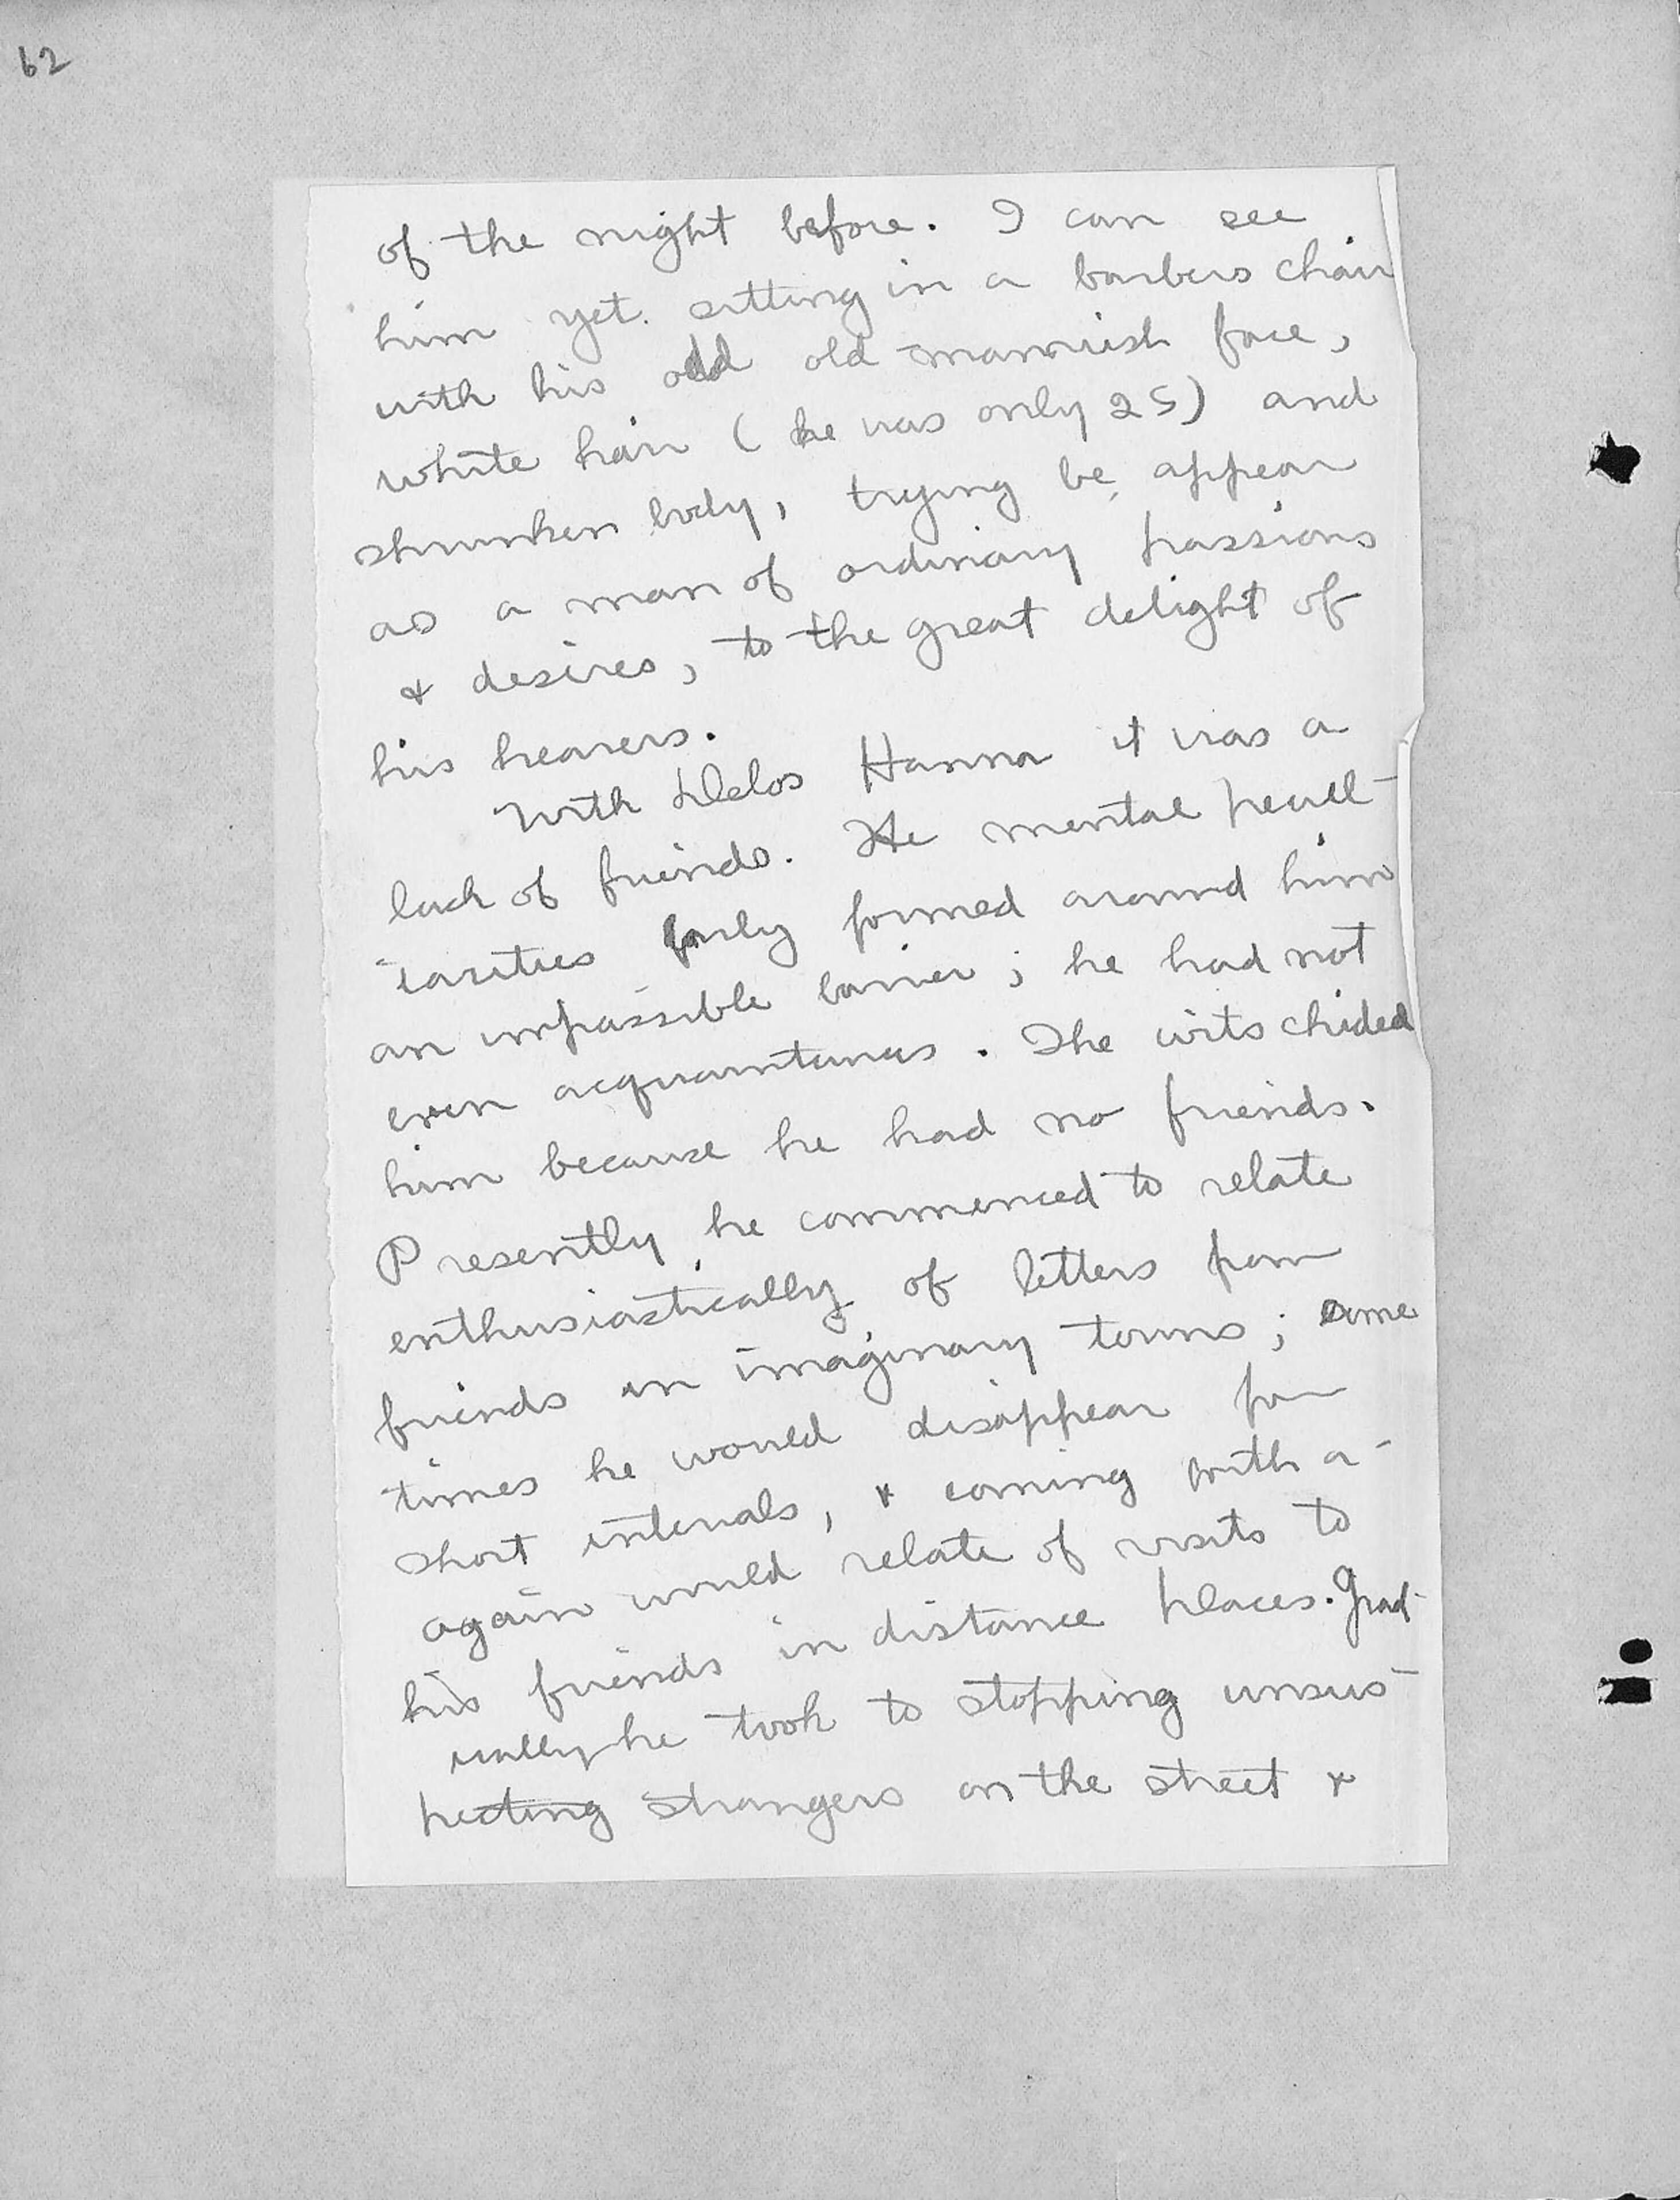 62
of the night before. I can see
him yet. sitting in a barbers chair
with his odd old mannish face,
white hair (he was only 25) and
shrunken body, trying be appear
as a man of ordinary passions
& desires, to the great delight of
his hearers.
With Delos Hanna it was a
lack of friends. He mental pecul-
iarities early formed around him
an impassible barrier; he had not
even acquaintances. The wits chided
him because he had no friends.
Presently he commenced to relate
enthusiastically of letters from
friends in imaginary towns; some
times he would disappear for
short intervals, & coming with a-
again would relate of visits to
his friends in distance places. Grad-
ually he took to stopping unsus-
pecting strangers on the street &